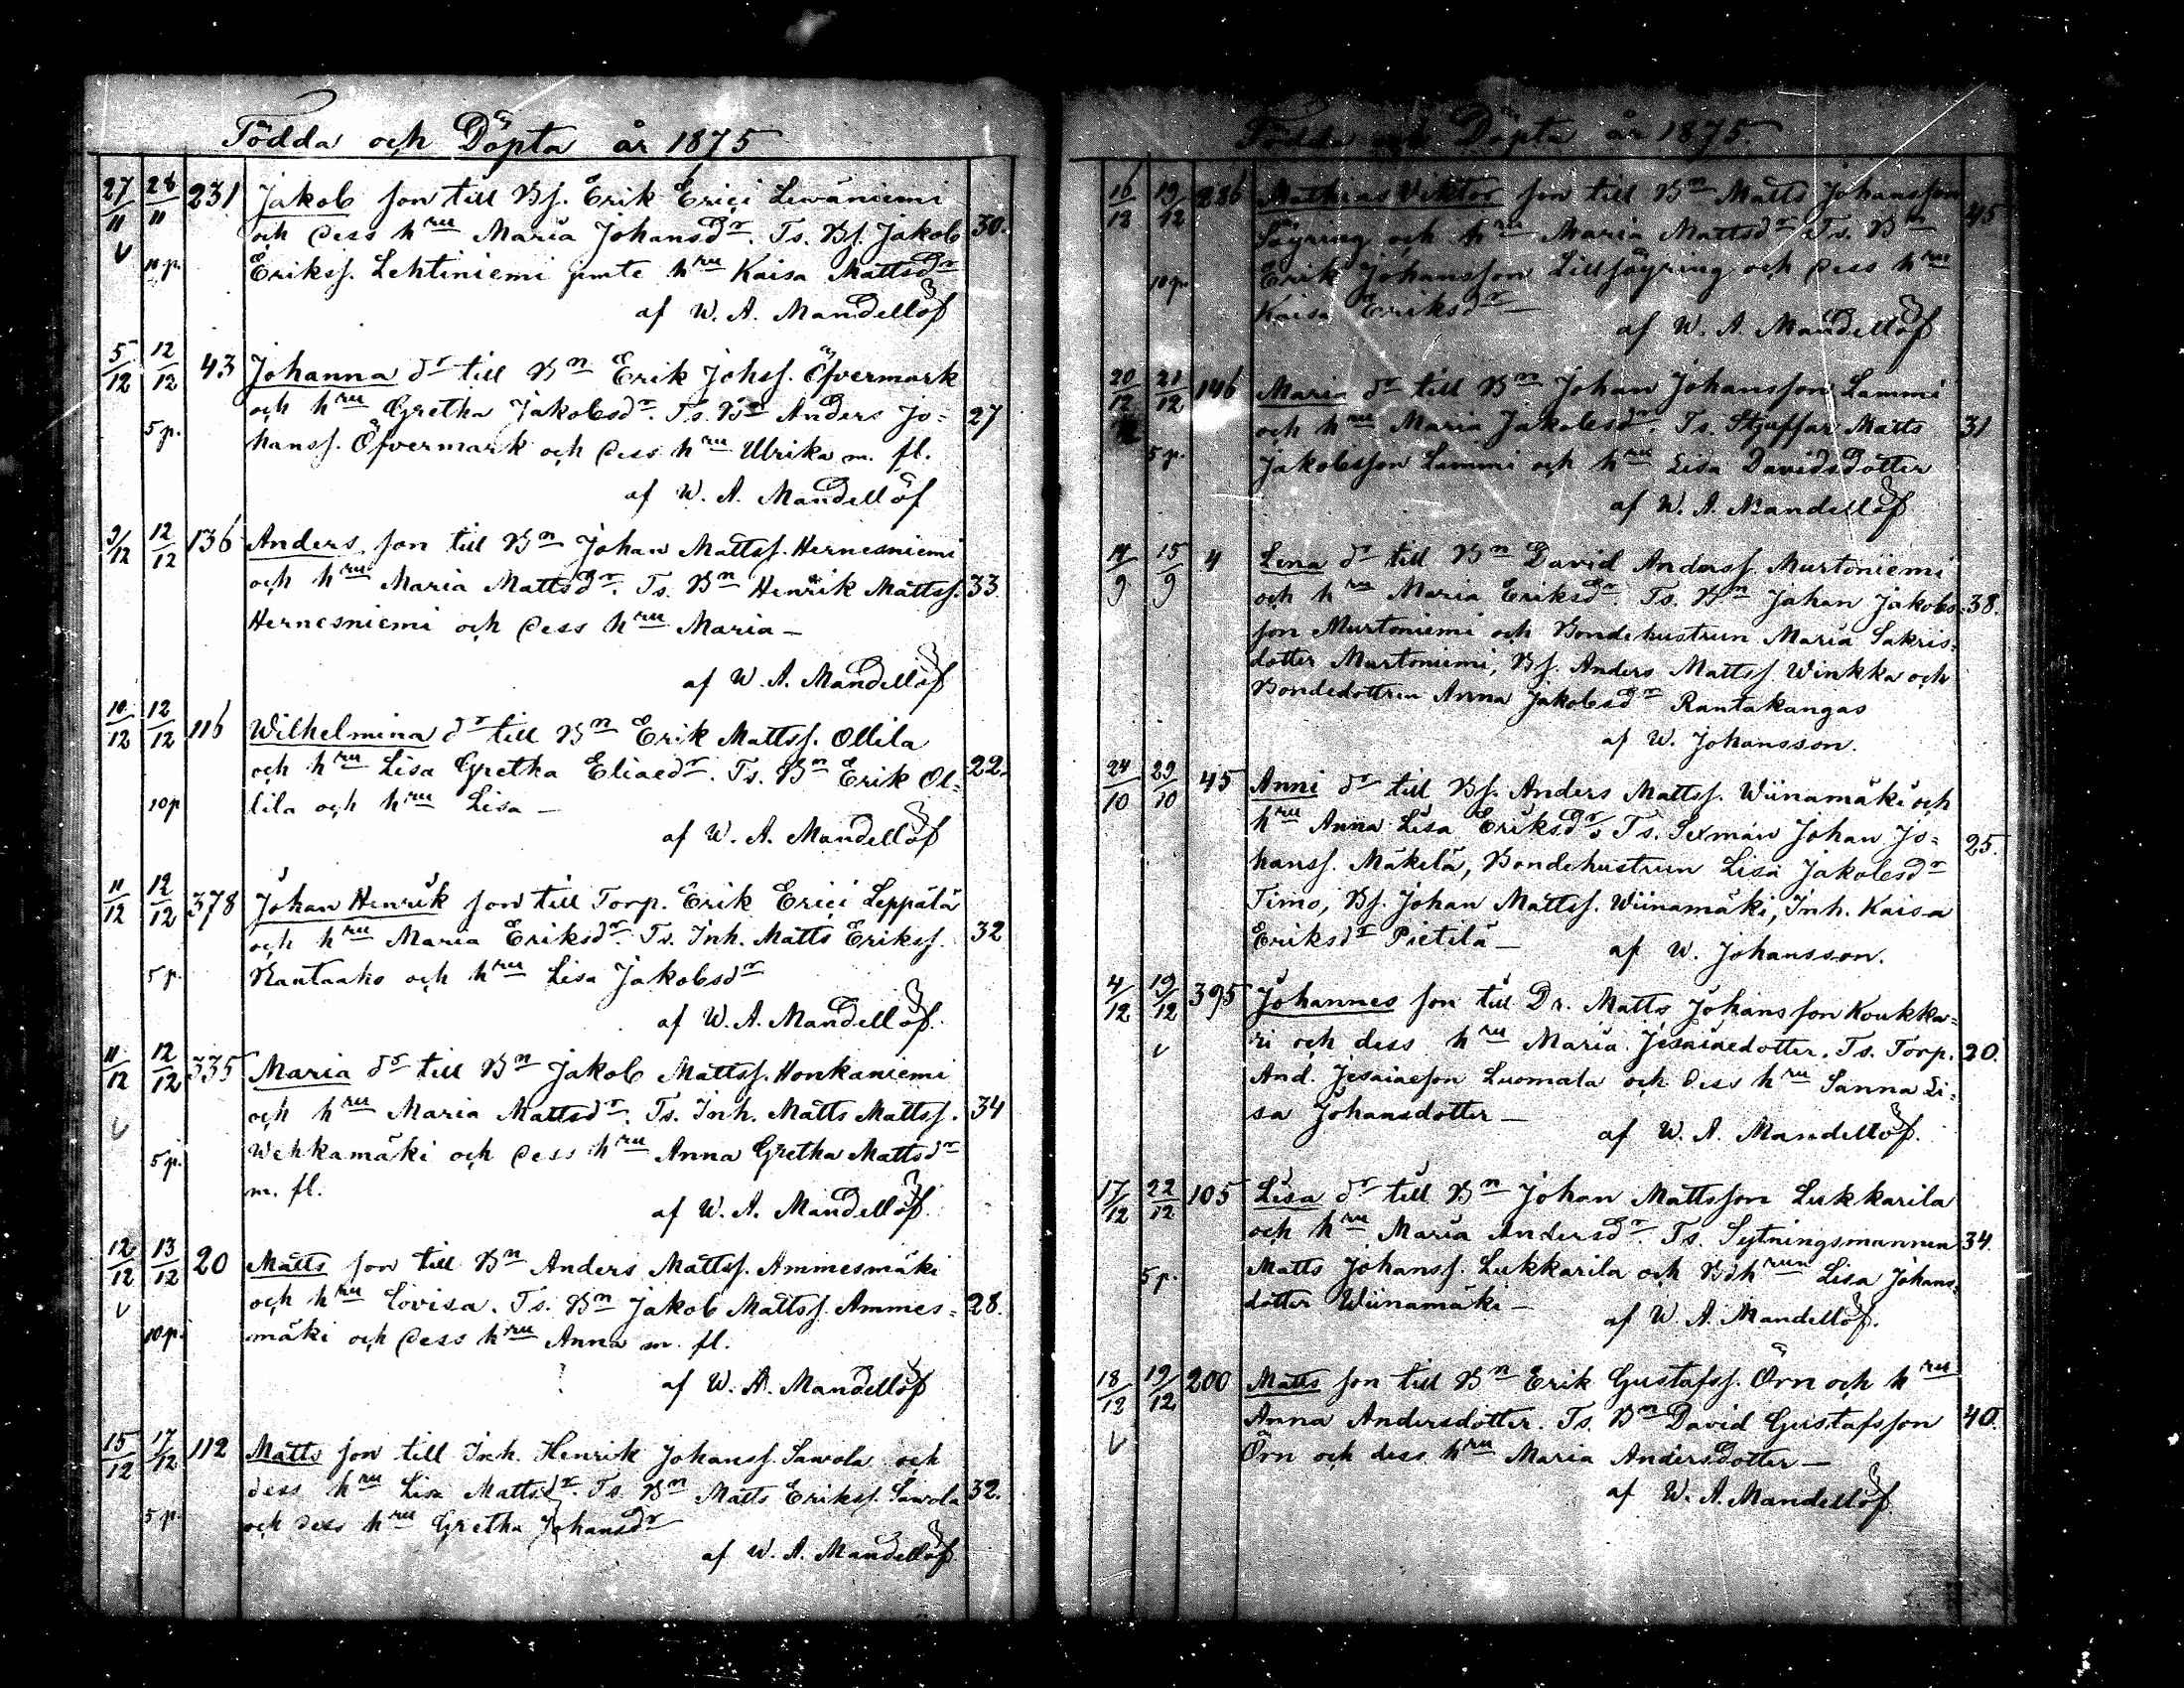 Födda och Döpta år 1875
27/11 28/11 231 Jakob son till Bs. Erik Erici Lewäniemi
och dess hru Maria Johansdr. Ts. Bs. Jakob 30.
10 p. Erikss. Lehtiniemi jemte hru Kaisa Mattsdr
af W. A. Mandellöf
5/12 12/12 43 Johanna dr till Bn Erik Johss. Öfvermark
och hru Gretha Jakobsdr. Ts. Bn Anders Jo= 27
5 p. hanss. Öfvermark och dess hru Ulrika m. fl.
af W. A. Mandellöf
9/12 12/12 136 Anders son till Bn Johan Mattss. Hernesniemi
och hru Maria Mattsdr. Ts. Bn Henrik Mattss. 33
Hernesniemi och dess hru Maria —
af W. A. Mandellöf
10/12 12/12 116 Wilhelmina dr till Bn Erik Mattss. Ollila
och hru Lisa Gretha Eliaedr. Ts. Bn Erik Ol= 22
10 p lila och hru Lisa —
af W. A. Mandellöf
11/12 12/12 378 Johan Henrik son till Torp. Erik Erici Leppälä
och hru Maria Eriksdr. Ts. Inh. Matts Erikss. 32
5 p. Rantaaho och hru Lisa Jakobsdr
af W. A. Mandellöf.
11/12 12/12 335 Maria dr till Bn Jakob Mattss. Honkaniemi
och hru Maria Mattsdr. Ts. Inh. Matts Mattss. 34
5 p. Wehkamäki och dess hru Anna Gretha Mattsdr
m. fl.
af W. A. Mandellöf.
12/12 13/12 20 Matts son till Bn Anders Mattss. Ammesmäki
och hru Lovisa. Ts. Bn Jakob Mattss. Ammes= 28.
10 p. mäki och dess hru Anna m. fl.
af W. A. Mandellöf
15/12 17/12 112 Matts son till Inh. Henrik Johanss. Sawola och
dess hru Lisa Mattsdr. Ts. Bn Matts Erikss. Sawola 32.
5 p. och dess hru Gretha Johansdr
af W. A. Mandellöf
Födda och Döpta år 1875.
16/12 19/12 286 Mathias Viktor son till Bn Matts Johansson
Töyring och hru Maria Mattsdr Ts. Bn 45
10 p. Erik Johansson Lilltöyring och dess hru
Kaisa Eriksdr —
af W. A. Mandellöf
20/12 21/12 146 Maria dr till Bn Johan Johansson Lammi
och hru Maria Jakobsdr. Ts. Stjuffar Matts 31
5 p. Jakobsson Lammi och hru Lisa Davidsdotter
af W. A. Mandellöf
14/9 15/9 4 Lena dr till Bn David Anderss. Murtoniemi
och hru Maria Eriksdr. Ts. Bn Johan Jakobs= 38.
son Murtoniemi och Bondehustrun Maria Sakris=
dotter Murtoniemi, Bs. Anders Mattss. Winkka och
Bondedottren Anna Jakobsdr Rantakangas
af W. Johansson.
24/10 29/10 45 Anni dr till Bs. Anders Mattss. Wiinamäki och
hru Anna Lisa Eriksdr. Ts. Sexman Johan Jo= 25.
hanss. Mäkelä, Bondehustrun Lisa Jakobsdr
Timo, Bs. Johan Mattss. Wiinamäki, Inh. Kaisa
Eriksdr Pietilä — af W. Johansson.
4/12 19/12 395 Johannes son till Dr. Matts Johansson Koukka=
ri och dess hru Maria Jesaiaedotter. Ts. Torp. 20.
And. Jesaiaeson Luomala och dess hru Sanna Li=
sa Johansdotter —
af W. A. Mandellöf.
17/12 22/12 105 Lisa dr till Bn Johan Mattsson Lukkarila
och hru Maria Andersdr. Ts. Sytningsmannen 34.
5 p. Matts Johanss. Lukkarila och Bdhrun Lisa Johans=
dotter Wiinamäki —
af W. A. Mandellöf.
18/12 19/12 200 Matts son till Bn Erik Gustafss. Örn och hru
Anna Andersdotter. Ts. Bn David Gustafsson 40.
Örn och dess hru Maria Andersdotter —
af W. A. Mandellöf